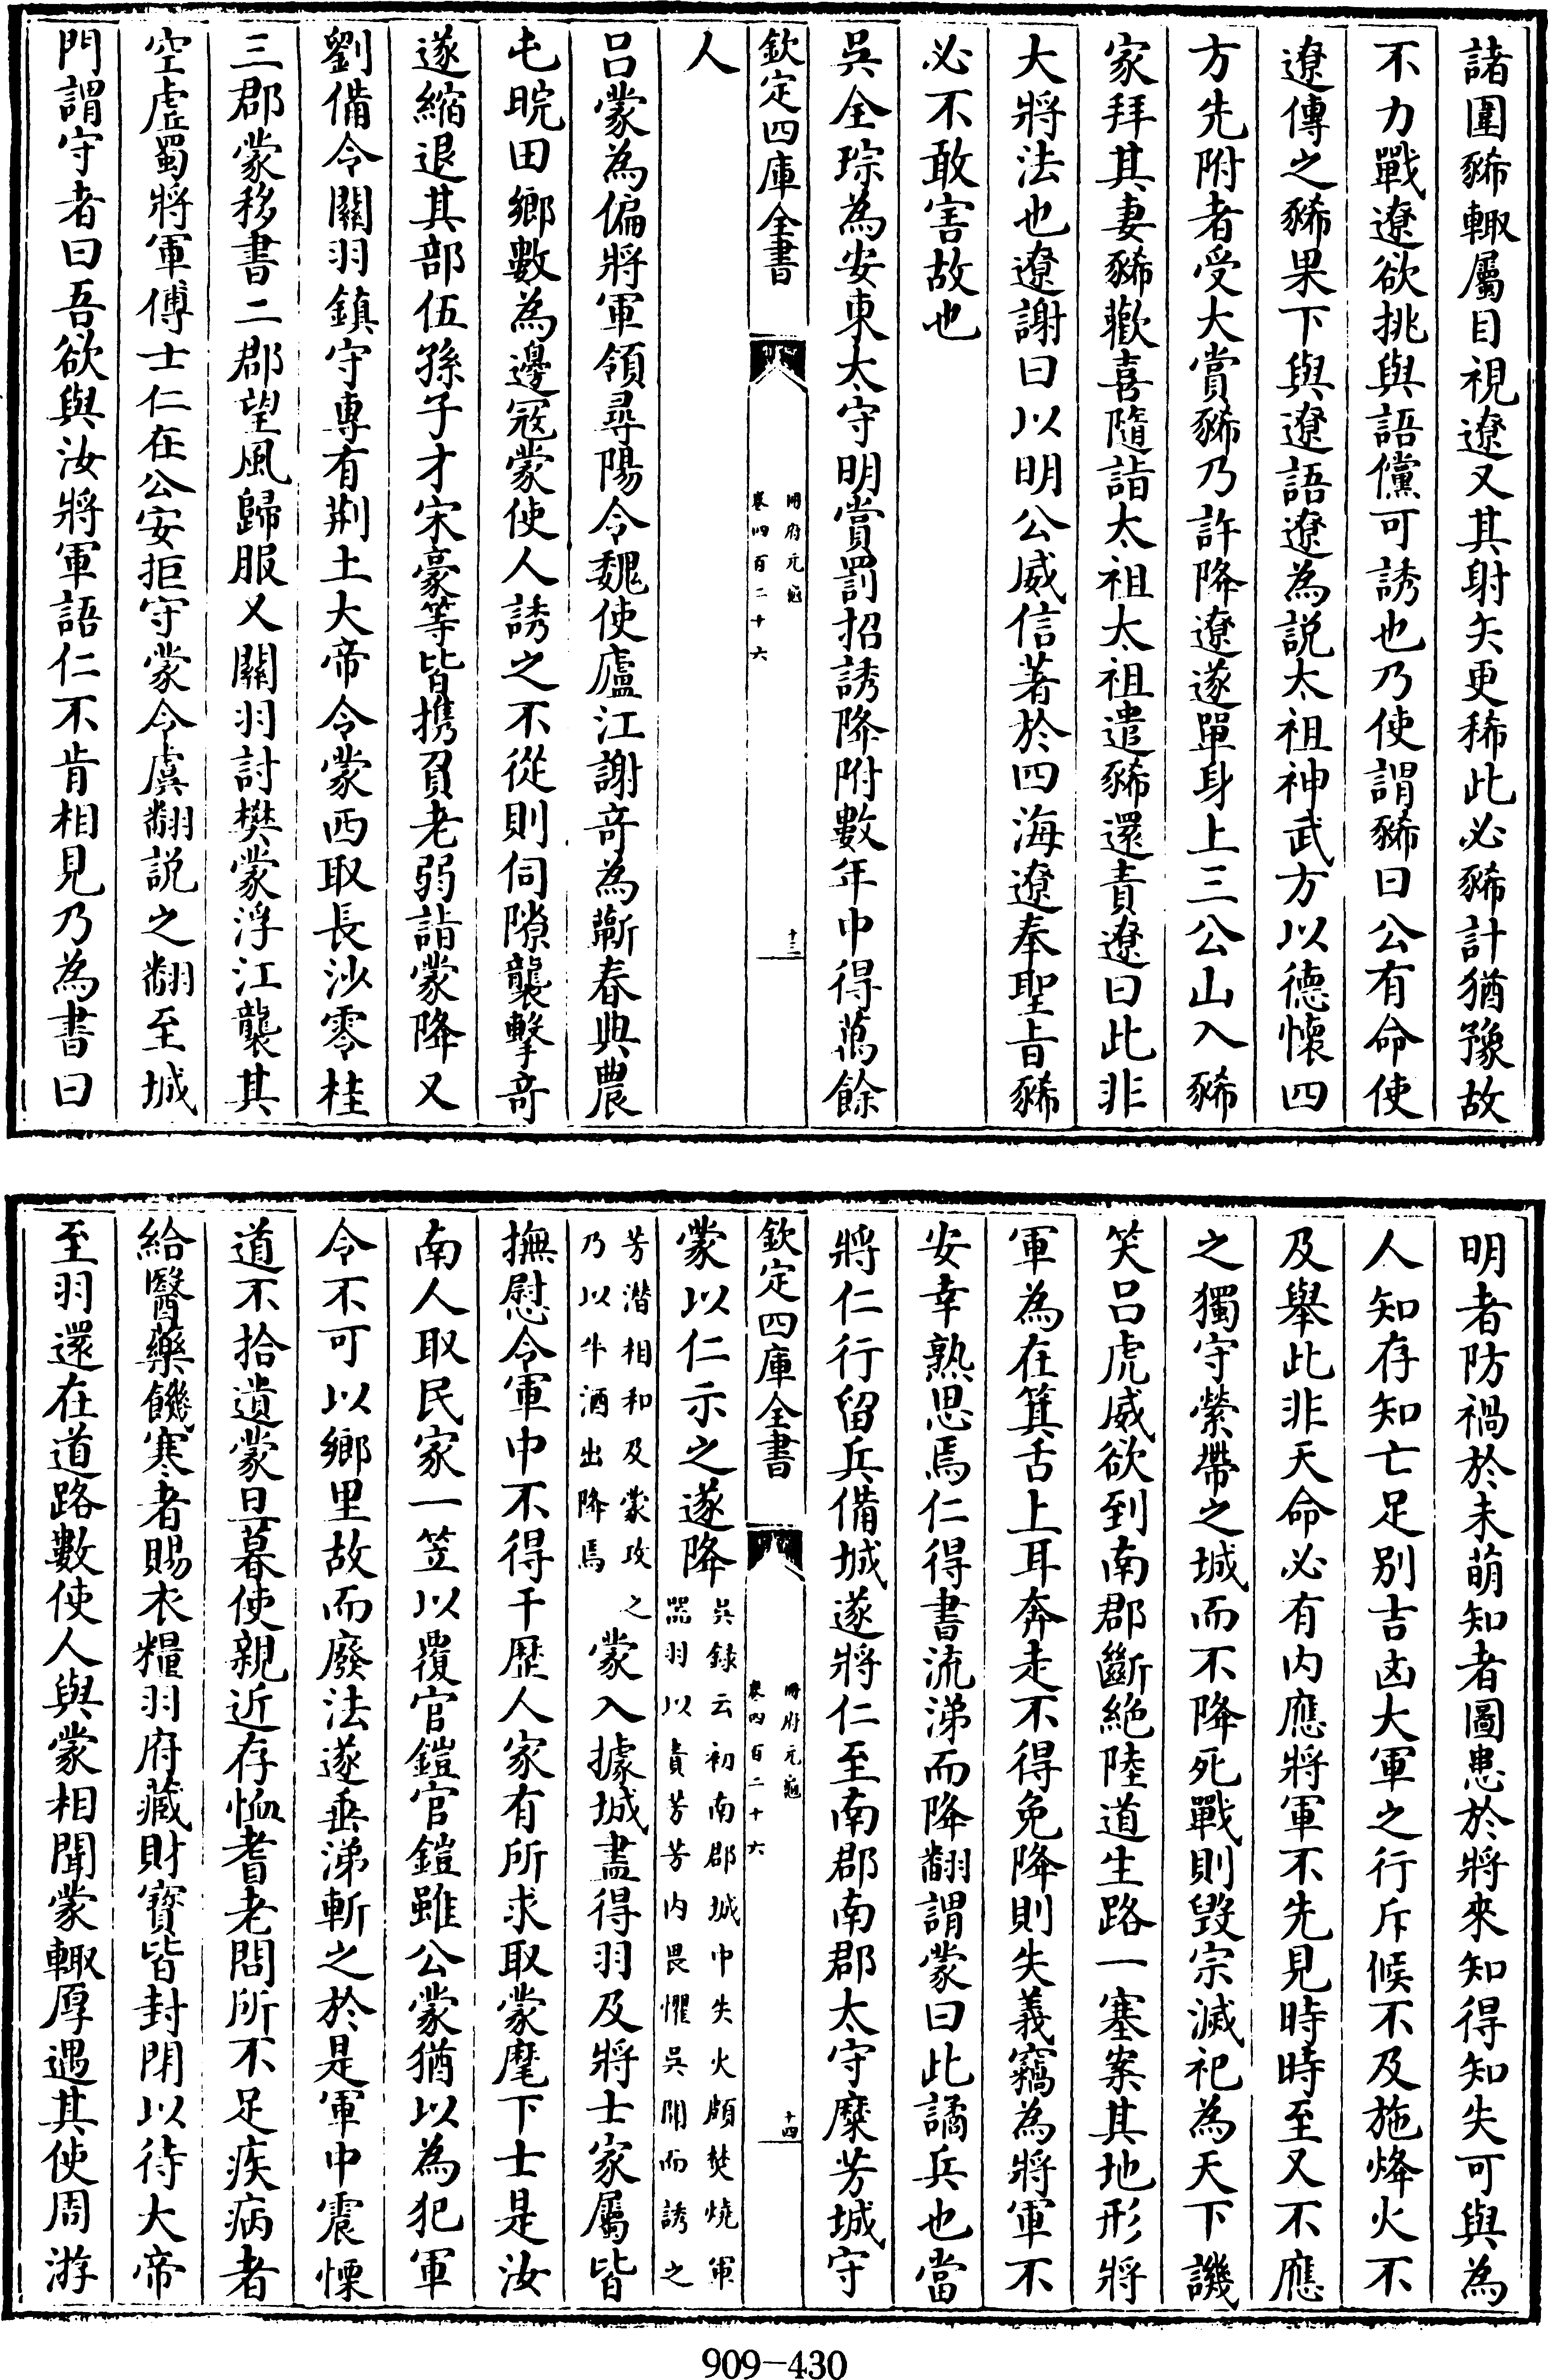 諸圍豨輙屬目視遼又其射矢更稀此必豨計猶豫故
不力戰遼欲挑與語儻可誘也乃使謂豨曰公有命使
遼傳之豨果下與遼語遼為説太祖神武方以德懷四
方先附者受大賞豨乃許降遼遂單身上三公山入豨
家拜其妻豨歡喜隨詣太祖太祖遣豨還責遼曰此非
大將法也遼謝曰以明公威信著於四海遼奉聖旨豨
必不敢害故也
吳全琮為安東太守明賞罰招誘降附數年中得萬餘
欽定四庫全書
冊府元龜
卷四百二十六
十三
人
呂蒙為偏將軍領尋陽令魏使廬江謝竒為蘄春典農
屯晥田鄉數為邊宼蒙使人誘之不從則伺隙襲擊竒
遂縮退其部伍孫子才宋豪等皆携負老弱詣蒙降又
劉備令關羽鎮守專有荆土大帝令蒙西取長沙零桂
三郡蒙移書二郡望風歸服又關羽討樊蒙浮江襲其
空虛蜀將軍傅士仁在公安拒守蒙令虞翻説之翻至城
門謂守者曰吾欲與汝將軍語仁不肯相見乃為書曰
明者防禍於未萌知者圖患於將來知得知失可與為
人知存知亡足别吉凶大軍之行斥候不及施烽火不
及舉此非天命必有内應將軍不先見時時至又不應
之獨守縈帶之城而不降死戰則毀宗滅祀為天下譏
笑呂虎威欲到南郡斷絶陸道生路一塞案其地形將
軍為在箕舌上耳奔走不得免降則失義竊為將軍不
安幸熟思焉仁得書流涕而降翻謂蒙曰此譎兵也當
將仁行留兵備城遂將仁至南郡南郡太守糜芳城守
欽定四庫全書
冊府元龜
卷四百二十六
十四
蒙以仁示之遂降吳録云初南郡城中失火頗焚燒軍
器羽以責芳芳内畏懼吳聞而誘之
芳潛相和及蒙攻之
乃以牛酒出降焉
蒙入據城盡得羽及將士家屬皆
撫慰令軍中不得干歴人家有所求取蒙麾下士是汝
南人取民家一笠以覆官鎧官鎧雖公蒙猶以為犯軍
令不可以鄉里故而廢法遂垂涕斬之於是軍中震慄
道不拾遺蒙旦暮使親近存恤耆老問所不足疾病者
給醫藥饑寒者賜衣糧羽府藏財寳皆封閉以待大帝
至羽還在道路數使人與蒙相聞蒙輙厚遇其使周游
909-430